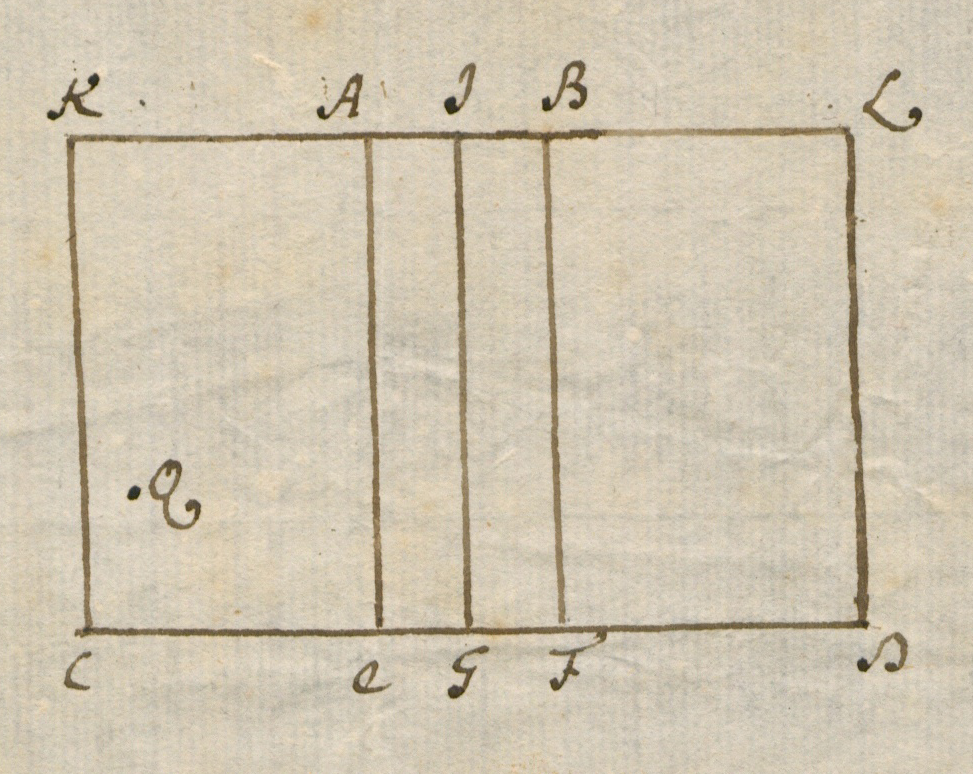 K A I B L
Q
C e G F D